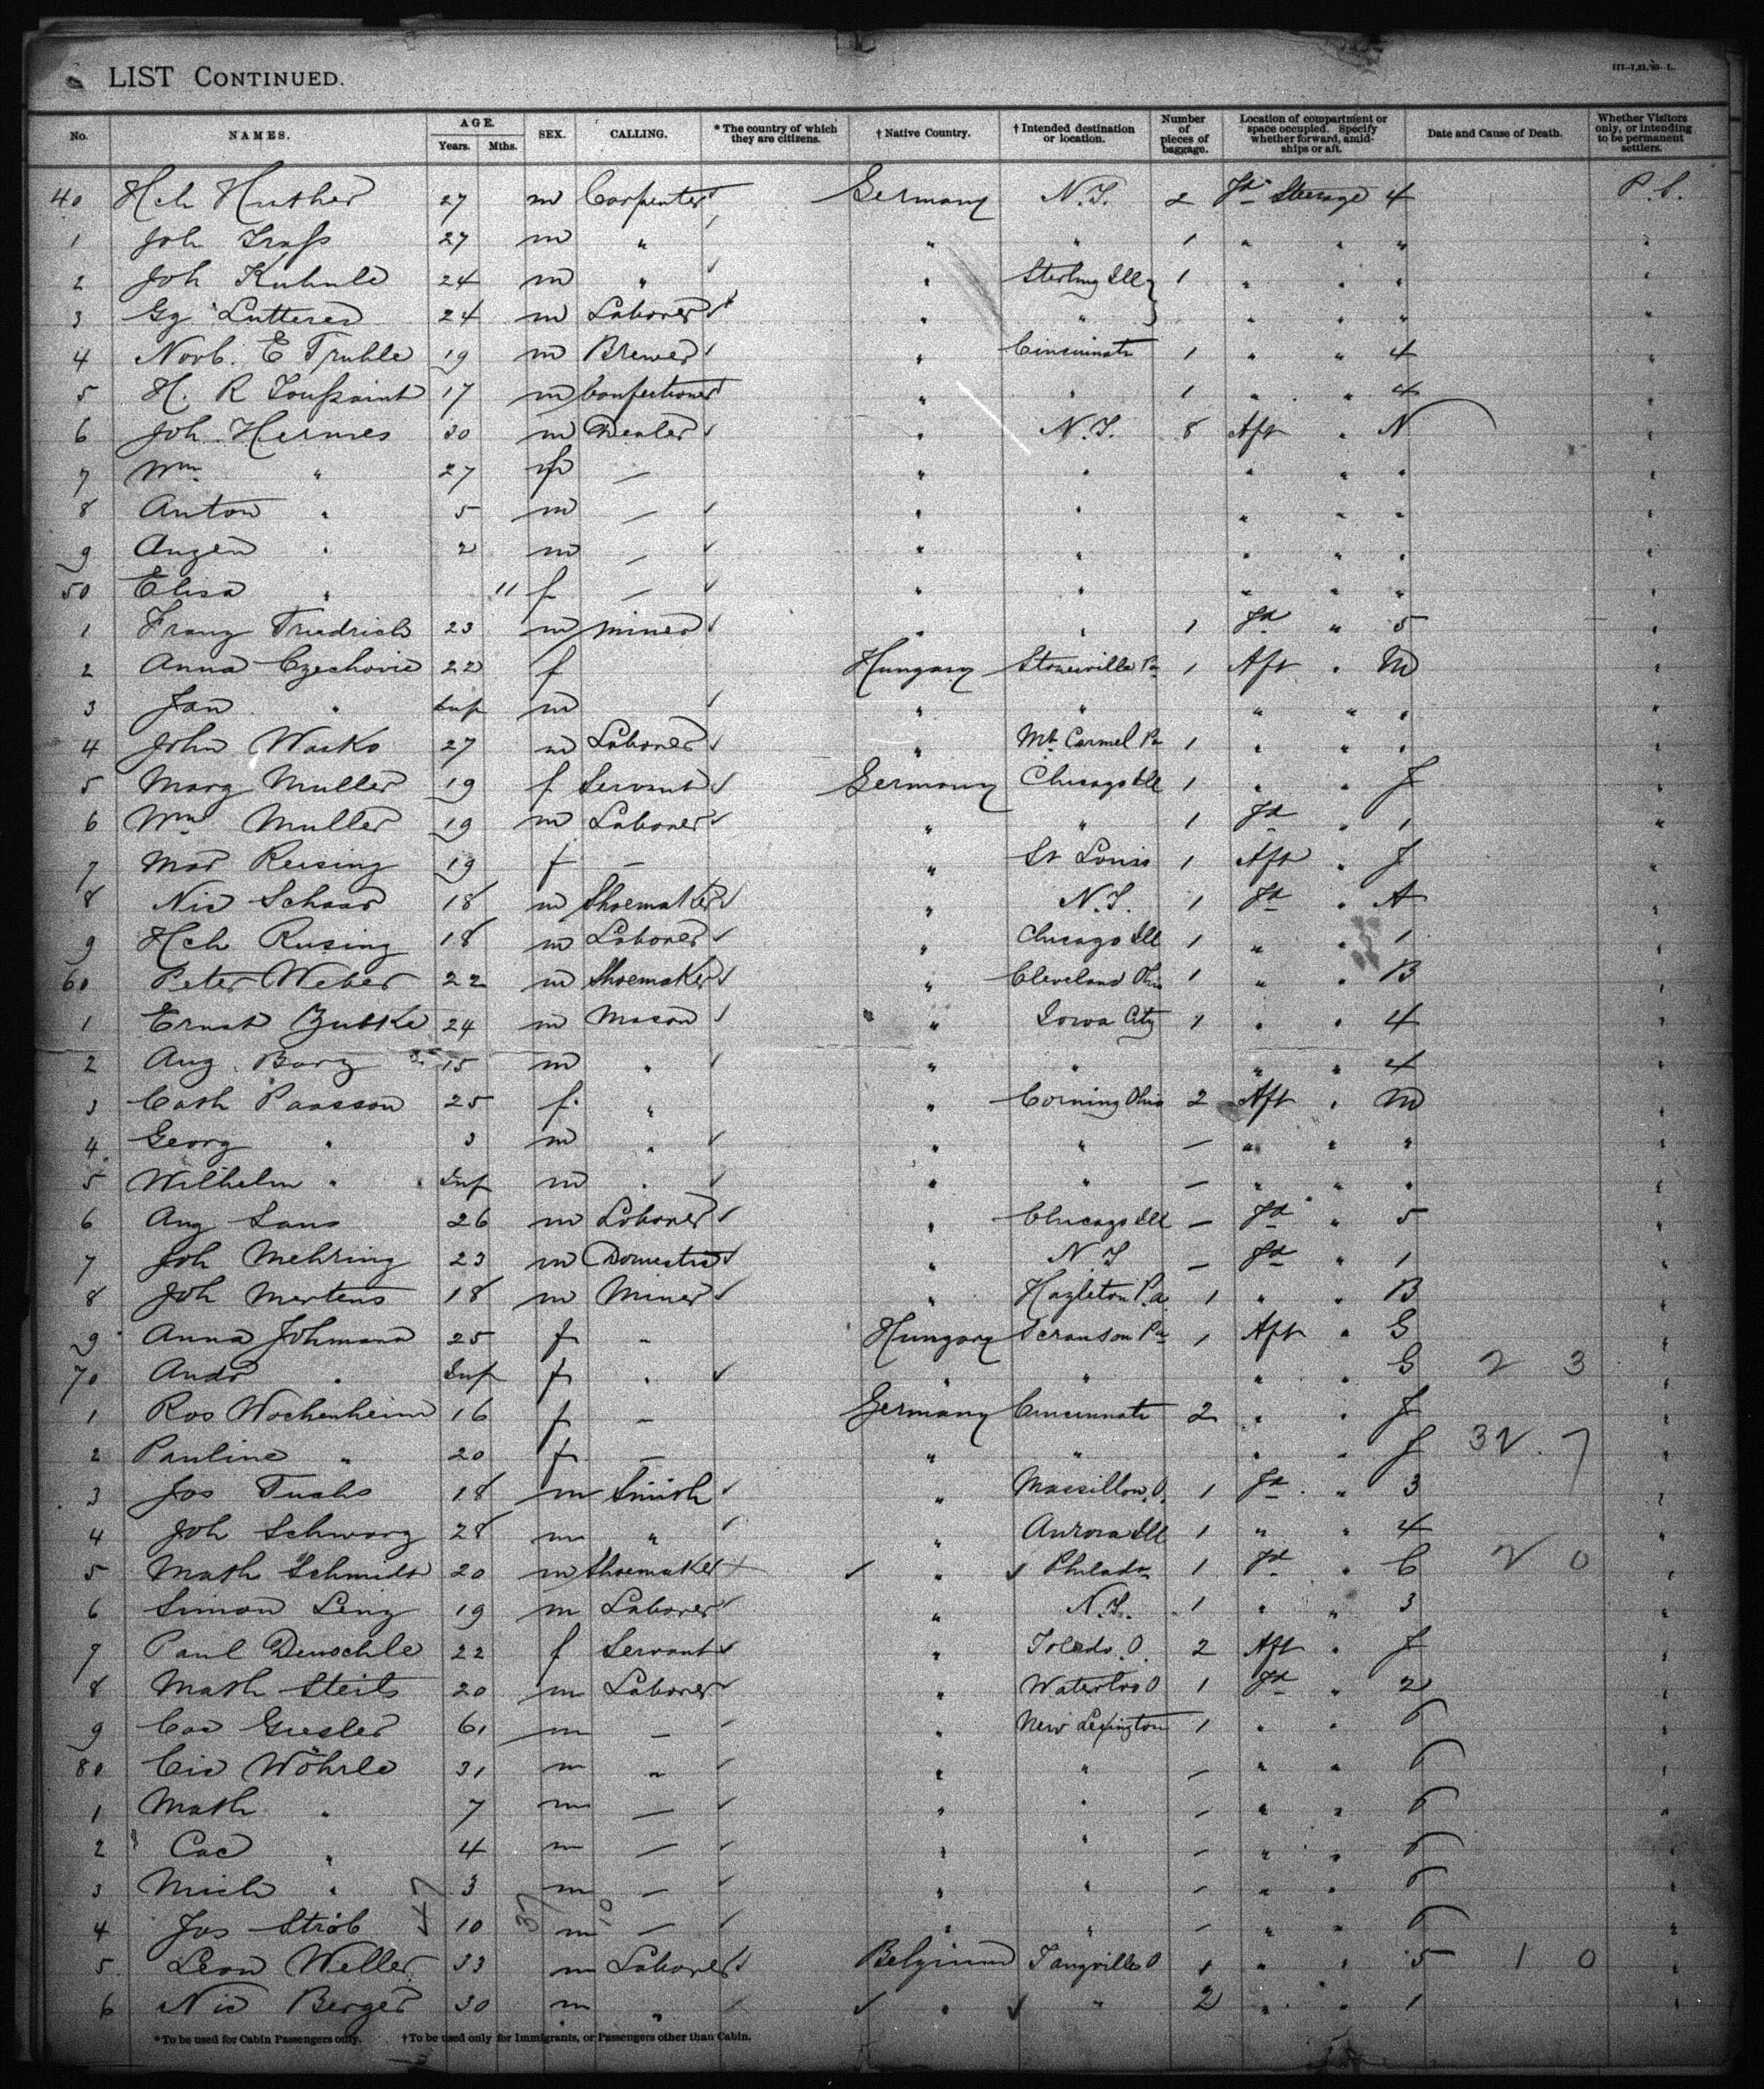 LIST CONTINUED.
No. NAMES. AGE. Years. Mths. SEX. CALLING. * The country of which they are citizens. † Native Country. † Intended destination or location. Number of pieces of baggage. Location of compartment or space occupied. Specify whether forward, amidships or aft. Date and Cause of Death. Whether Visitors only, or intending to be permanent settlers.
40 Hch Huther 27 m Carpenter Germany N.Y. 2 Fd Steerage 4 P.S.
1 Joh 27 m " " " 1 " " " "
2 Joh Kuhnle 24 m " " Sterling Ill 1 " " " "
3 Gg Lutterer 24 m Laborer " " " " " "
4 E Truhle 19 m Brewer " Cincinnati 1 " " 4 "
5 H. R Toussaint 17 m Confectioner " " 1 " " 4 "
6 Joh. Hermes 30 m Dealer " N.Y. 8 Aft " N "
7 Wm " 27 f — " " " " " "
8 Anton " 5 m — " " " " " "
9 Augen " 2 m — " " " " " "
50 Elisa " 11 f — " " " " " "
1 Franz Friedrich 23 m Miner " " 1 Fd " 5 "
2 Anna Czechovic 22 f Hungary Pa 1 Aft " M "
3 Jan " Inf m " " " " " "
4 John Wasko 27 m Laborer " Mt Carmel Pa 1 " " " "
5 Marg Muller 19 f Servant Germany Chicago Ill 1 " " J "
6 Wm Muller 19 m Laborer " " 1 Fd " 1 "
7 Mar Reising 19 f — " St Louis 1 Aft " J "
8 Nic Schaar 18 m Shoemaker " N.Y. 1 Fd " A "
9 Hch Reising 18 m Laborer " Chicago Ill 1 " " 1 "
60 Peter Weber 22 m Shoemaker " Cleveland Ohio 1 " " B "
1 Ernst Zubke 24 m Mason " Iowa City 1 " " 4 "
2 Aug. Barz 15 m " " " " " 4 "
3 Cath Paasson 25 f " " Corning Ohio 2 Aft " M "
4 Georg " 3 m " " " — " " " "
5 Wilhelm " Inf m " " " — " " " "
6 Aug Laus 26 m Laborer " Chicago Ill — Fd " 5 "
7 Joh Mehring 23 m Domestic " N.Y — Fd " 1 "
8 Joh Mertens 18 m Miner " Hazleton Pa. 1 " " B "
9 Anna Johmann 25 f " Hungary Scranton Pa 1 Aft " G "
70 Andr " Inf f " " " " " G 2 3 "
1 Ros Wochenheim 16 f — Germany Cincinnati 2 " " J "
2 Pauline " 20 f — " " " " J 32. 7 "
3 Jos Fuchs 18 m Smith " Massillon O. 1 Fd " 3 "
4 Joh Schwarz 28 m " " Aurora Ill 1 " " 4 "
5 Math Schmidt 20 m Shoemaker " Philada 1 Fd " C 2 0 "
6 Simon Linz 19 m Laborer " N.Y. 1 " " 3 "
7 Paul Deuschle 22 f Servant " Toledo O. 2 Aft " J "
8 Math Steits 20 m Laborer " Waterloo O 1 Fd " 2 "
9 Cas Gresler 61 m — " New Lexington 1 " " 6 "
80 Cic Wöhrle 31 m " " " — " " 6 "
1 Math " 7 m — " " — " " 6 "
2 Cac " 4 m — " " — " " 6 "
3 Mich " 3 m — " " — " " 6 "
4 Jos Ströb 10 m — " " — " " 6 "
5 Leon Weller 33 m Laborer Belgium O 1 " " 5 1 0 "
6 Nic Berger 30 m " " " 2 " " 1 "
*To be used for Cabin Passengers only. †To be used only for Immigrants, or Passengers other than Cabin.